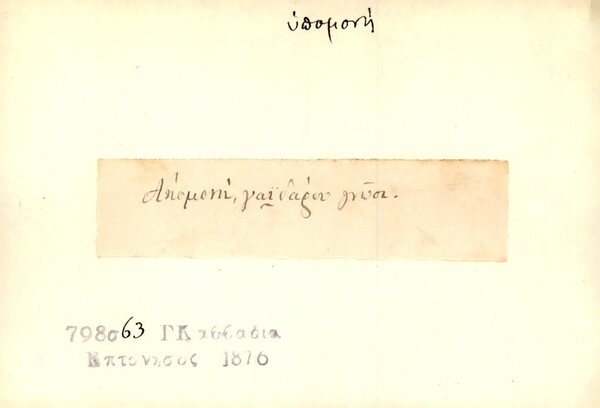 ὑπομονή
Ἀπομονή, γαϊδάρου γνῶσι.
798σ63 Γ Κασσαδια
Επτονησος 1876